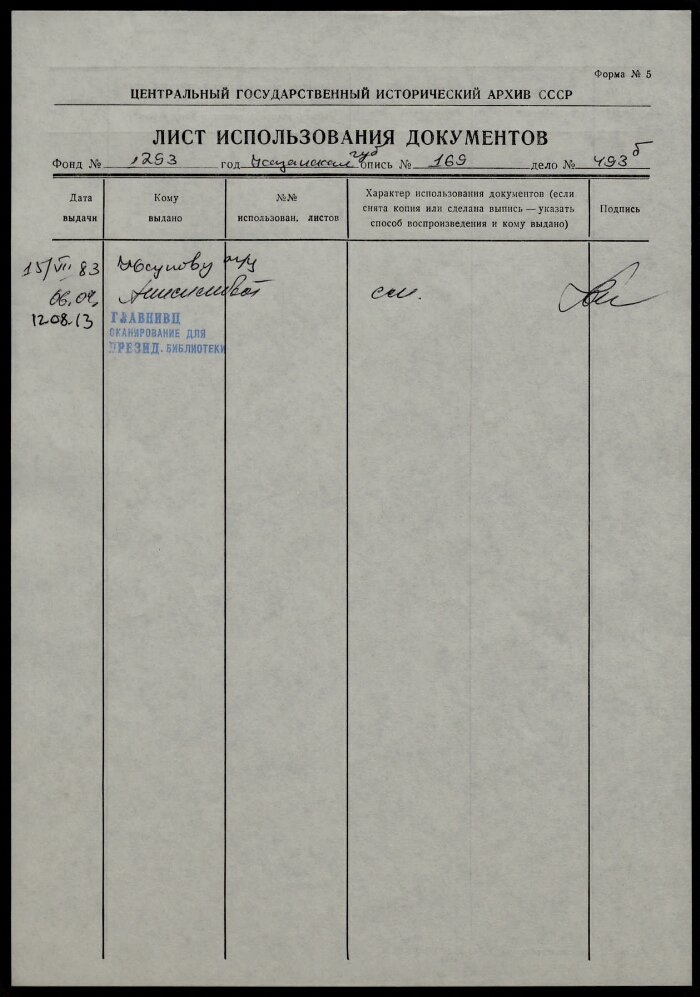 Форма № 5
ЦЕНТРАЛЬНЫЙ ГОСУДАРСТВЕННЫЙ ИСТОРИЧЕСКИЙ АРХИВ СССР
ЛИСТ ИСПОЛЬЗОВАНИЯ ДОКУМЕНТОВ
Фонд № 1293 год Казанская губ опись № 169 дело № 493б
Дата выдачи
Кому выдано
№№ использован. листов
Характер использования документов (если
снята копия или сделана выпись — указать
способ воспроизведения и кому выдано)
Подпись
15/VII 83
06.04.
см.
12.08.13
ГЛАВНИВЦ
СКАНИРОВАНИЕ ДЛЯ
ПРЕЗИД. БИБЛИОТЕКИ